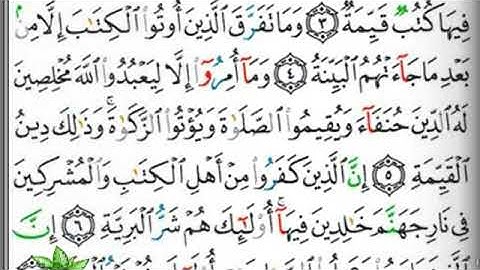 فِيهَا كُتُبٌ قَيِّمَةٌ ٣ وَمَا تَفَرَّقَ الَّذِينَ أُوتُوا الْكِتَٰبَ إِلَّا مِنۢ
بَعْدِ مَا جَآءَتْهُمُ الْبَيِّنَةُ ٤ وَمَآ أُمِرُوٓا إِلَّا لِيَعْبُدُوا اللَّهَ مُخْلِصِينَ
لَهُ الدِّينَ حُنَفَآءَ وَيُقِيمُوا الصَّلَوٰةَ وَيُؤْتُوا الزَّكَوٰةَ ۚ وَذَٰلِكَ دِينُ
الْقَيِّمَةِ ٥ إِنَّ الَّذِينَ كَفَرُوا مِنْ أَهْلِ الْكِتَٰبِ وَالْمُشْرِكِينَ
فِى نَارِ جَهَنَّمَ خَٰلِدِينَ فِيهَآ ۚ أُولَٰٓئِكَ هُمْ شَرُّ الْبَرِيَّةِ ٦ إِنَّ